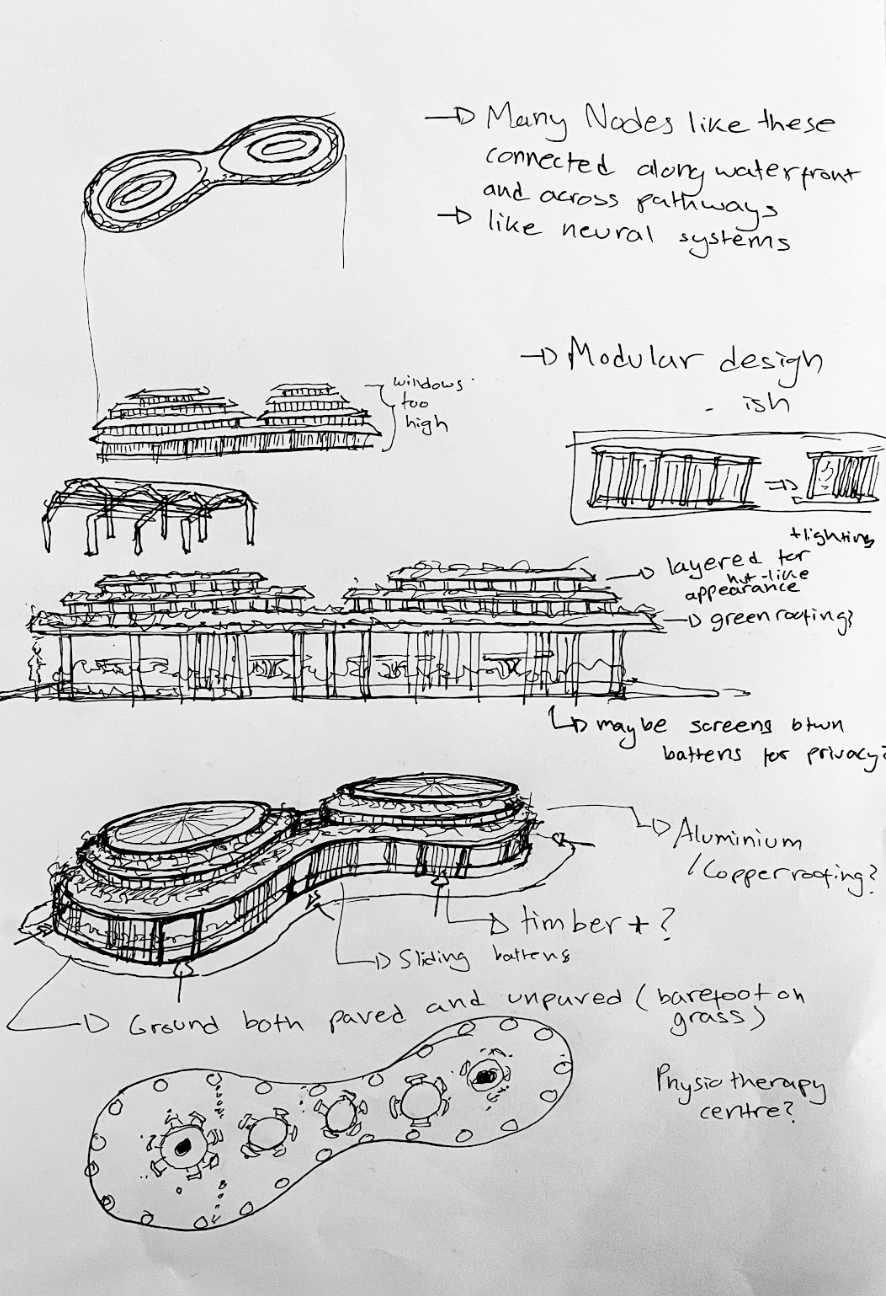 Many Nodes like these
connected along waterfront
and across pathways
like neural systems
Modular design
- ish
windows
too
high
+lighting
layered for
hut-like
appearance
green roofing?
maybe screens btwn
battens for privacy?
Aluminium
/Copper roofing?
timber + ?
Sliding battens
Ground both paved and unpaved (barefoot on
grass)
Physiotherapy
centre?